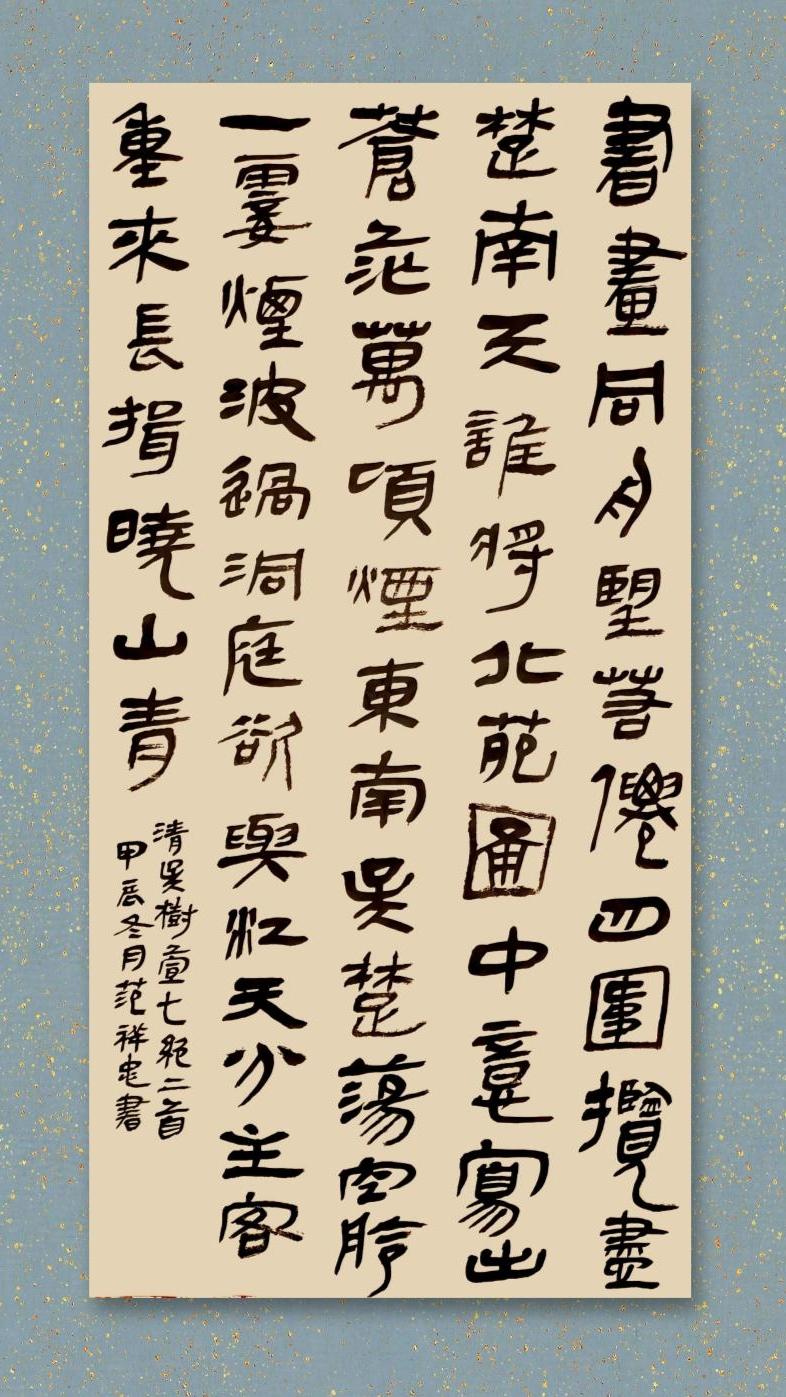 書畫同舟望若僊四圍攬盡
楚南天誰將北苑圖中意寫出
蒼茫萬頃煙東南吳楚蕩空舲
一霎煙波過洞庭欲與江天分主客
重來長揖曉山青
清吳樹萱七絕二首
甲辰冬月范祥忠書